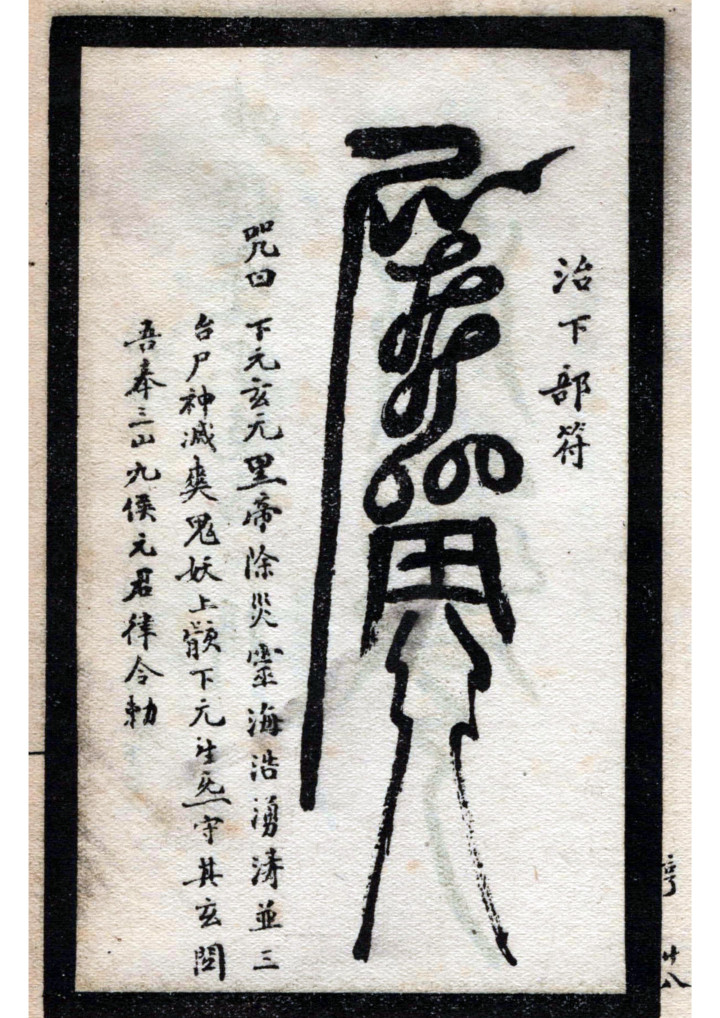 治下部符
咒曰 下元玄元黑帝除災靈海浩湧濤並三
台尸神滅爽鬼妖上顥下元生炁守其玄関
吾奉三山九侯元君律令勅
亨 廿八